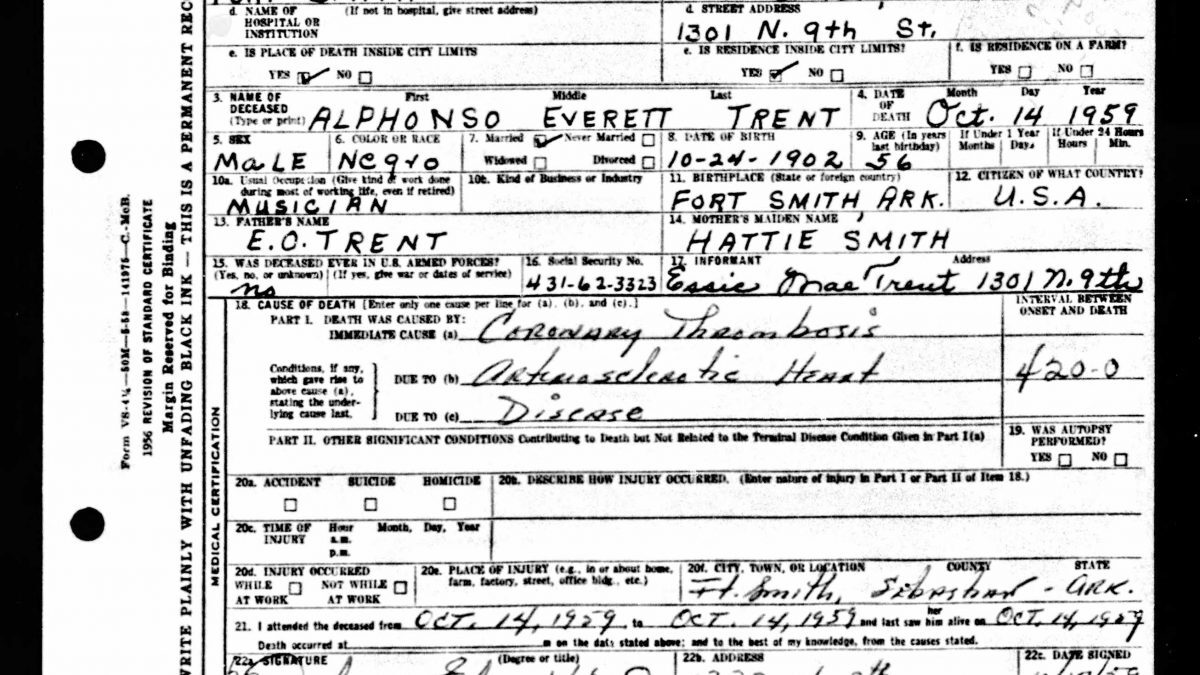 d. NAME OF (If not in hospital, give street address)
HOSPITAL OR
INSTITUTION
d. STREET ADDRESS
1301 N. 9th St.
e. IS PLACE OF DEATH INSIDE CITY LIMITS
YES NO
e. IS RESIDENCE INSIDE CITY LIMITS?
YES NO
f. IS RESIDENCE ON A FARM?
YES NO
3. NAME OF DECEASED (Type or print)
First Middle Last
ALPHONSO EVERETT TRENT
4. DATE OF DEATH
Month Day Year
Oct. 14 1959
5. SEX
MALE
6. COLOR OR RACE
Negro
7. Married Never Married
Widowed Divorced
8. DATE OF BIRTH
10-24-1902
9. AGE (In years last birthday)
56
If Under 1 Year
Months Days
If Under 24 Hours
Hours Min.
10a. Usual Occupation (Give kind of work done
during most of working life, even if retired)
MUSICIAN
10b. Kind of Business or Industry
11. BIRTHPLACE (State or foreign country)
FORT SMITH ARK.
12. CITIZEN OF WHAT COUNTRY?
U.S.A.
13. FATHER'S NAME
E.O. TRENT
14. MOTHER'S MAIDEN NAME
HATTIE SMITH
15. WAS DECEASED EVER IN U.S. ARMED FORCES?
(Yes, no, or unknown) (If yes, give war or dates of service)
no
16. Social Security No.
431-62-3323
17. INFORMANT Address
Essie Mae Trent 1301 N. 9th
18. CAUSE OF DEATH [Enter only one cause per line for (a). (b). and (c).]
INTERVAL BETWEEN
ONSET AND DEATH
PART I. DEATH WAS CAUSED BY:
IMMEDIATE CAUSE (a) Coronary Thrombosis
Conditions, if any,
which gave rise to
above cause (a),
stating the under-
lying cause last.
DUE TO (b) Arteriosclerotic Heart
420-0
DUE TO (c) Disease
PART II. OTHER SIGNIFICANT CONDITIONS Contributing to Death but Not Related to the Terminal Disease Condition Given in Part I(a)
19. WAS AUTOPSY
PERFORMED?
YES NO
20a. ACCIDENT SUICIDE HOMICIDE
20b. DESCRIBE HOW INJURY OCCURRED. (Enter nature of injury in Part I or Part II of Item 18.)
20c. TIME OF INJURY
Hour Month, Day, Year
a.m.
p.m.
20d. INJURY OCCURRED
WHILE AT WORK NOT WHILE AT WORK
20e. PLACE OF INJURY (e.g., in or about home,
farm, factory, street, office bldg., etc.)
20f. CITY, TOWN, OR LOCATION COUNTY STATE
Ft. Smith, Sebastian - ARK.
21. I attended the deceased from OCT. 14, 1959 to OCT. 14, 1959 and last saw her him alive on OCT. 14, 1959
Death occurred at m on the date stated above; and to the best of my knowledge, from the causes stated.
22a. SIGNATURE (Degree or title)
22b. ADDRESS
22c. DATE SIGNED
MEDICAL CERTIFICATION
WRITE PLAINLY WITH UNFADING BLACK INK — THIS IS A PERMANENT REC
Margin Reserved for Binding
1956 REVISION OF STANDARD CERTIFICATE